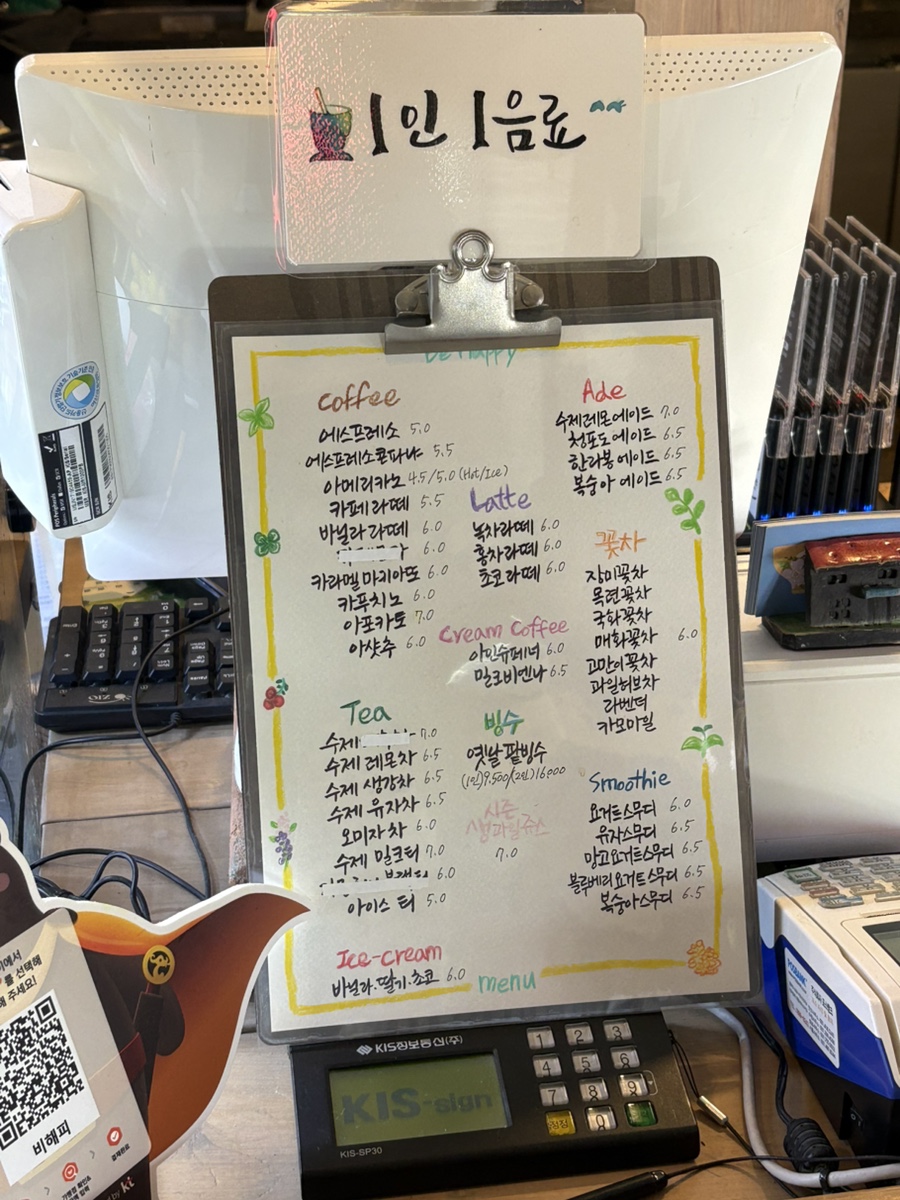 1인 1음료
Be Happy
Coffee
에스프레소 5.0
에스프레소콘파냐 5.5
아메리카노 4.5/5.0 (Hot/Ice)
카페라떼 5.5
바닐라라떼 6.0
6.0
카라멜마키아또 6.0
카푸치노 6.0
아포카토 7.0
아샷추 6.0
Latte
녹차라떼 6.0
홍차라떼 6.0
초코라떼 6.0
Cream Coffee
아인슈페너 6.0
밀크비엔나 6.5
Tea
수제 7.0
수제 레몬차 6.5
수제 생강차 6.5
수제 유자차 6.5
오미자차 6.0
수제 밀크티 7.0
6.0
아이스 티 5.0
빙수
옛날 팥빙수
(1인)9,500/(2인)16,000
시즌
생과일쥬스
7.0
Ice-cream
바닐라.딸기.초코 6.0
Ade
수제레몬에이드 7.0
청포도에이드 6.5
한라봉에이드 6.5
복숭아 에이드 6.5
꽃차
장미꽃차
목련꽃차
국화꽃차
매화꽃차 6.0
고만이꽃차
과일허브차
라벤더
카모마일
Smoothie
요거트스무디 6.0
유자스무디 6.5
망고요거트스무디 6.5
블루베리요거트스무디 6.5
복숭아스무디 6.5
menu
KIS정보통신(주)
KIS-sign
KIS-SP30
1 2 3
4 5 6
7 8 9
정정 0
비해피